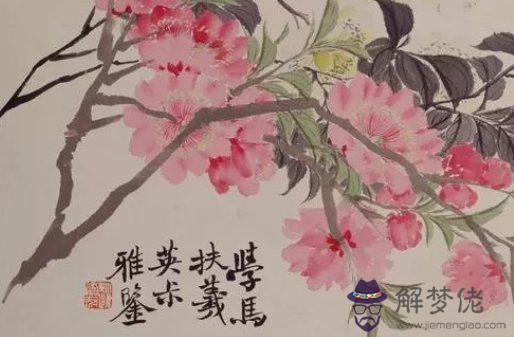 學馬
扶羲
英
雅鑒
解梦佬
www.jiemenglao.com